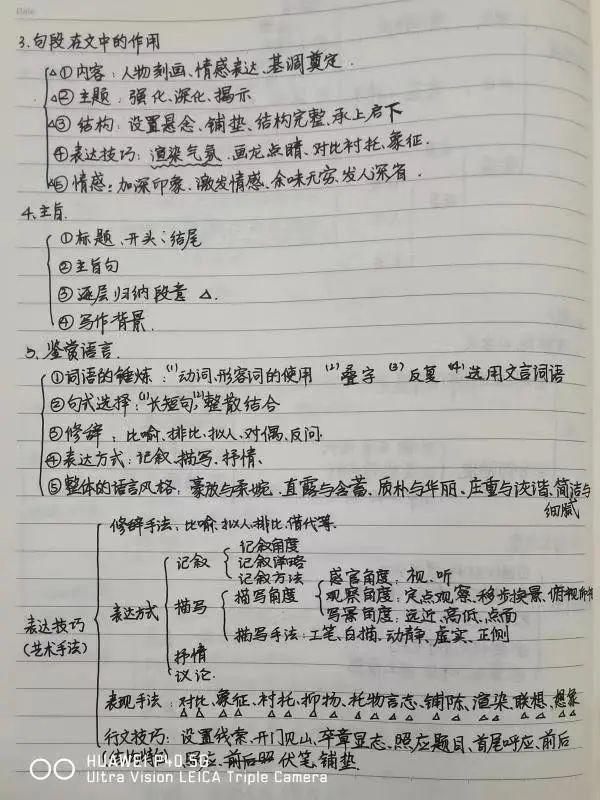 Date
3.句段在文中的作用
△①内容：人物刻画、情感表达、基调奠定.
△②主题：强化、深化、揭示
△③结构：设置悬念、铺垫、结构完整、承上启下
④表达技巧：渲染气氛、画龙点睛、对比衬托、象征.
△⑤情感：加深印象、激发情感、余味无穷、发人深省.
4.主旨.
①标题、开头、结尾
②主旨句
③逐层归纳段意 △.
④写作背景.
5.鉴赏语言.
①词语的锤炼：(1)动词、形容词的使用 (2)叠字 (3)反复 (4)选用文言词语
②句式选择：(1)长短句 (2)整散结合
③修辞：比喻、排比、拟人、对偶、反问.
④表达方式：记叙、描写、抒情、
⑤整体的语言风格：豪放与柔婉、直露与含蓄、质朴与华丽、庄重与诙谐、简洁与
细腻
修辞手法：比喻、拟人、排比、借代等.
记叙角度
记叙 记叙详略
记叙方法
感官角度：视、听
表达方式 描写 描写角度 观察角度：定点观察、移步换景、俯视仰视
写景角度：远近、高低、点面
描写手法：工笔、白描、动静、虚实、正侧
表达技巧
(艺术手法)
抒情
议论.
表现手法：对比、象征、衬托、抑扬、托物言志、铺陈、渲染、联想、想象
行文技巧：设置线索、开门见山、卒章显志、照应题目、首尾呼应、前后
(结构特征) 呼应、前后照 伏笔、铺垫.
HUAWEI P40 5G
Ultra Vision LEICA Triple Camera